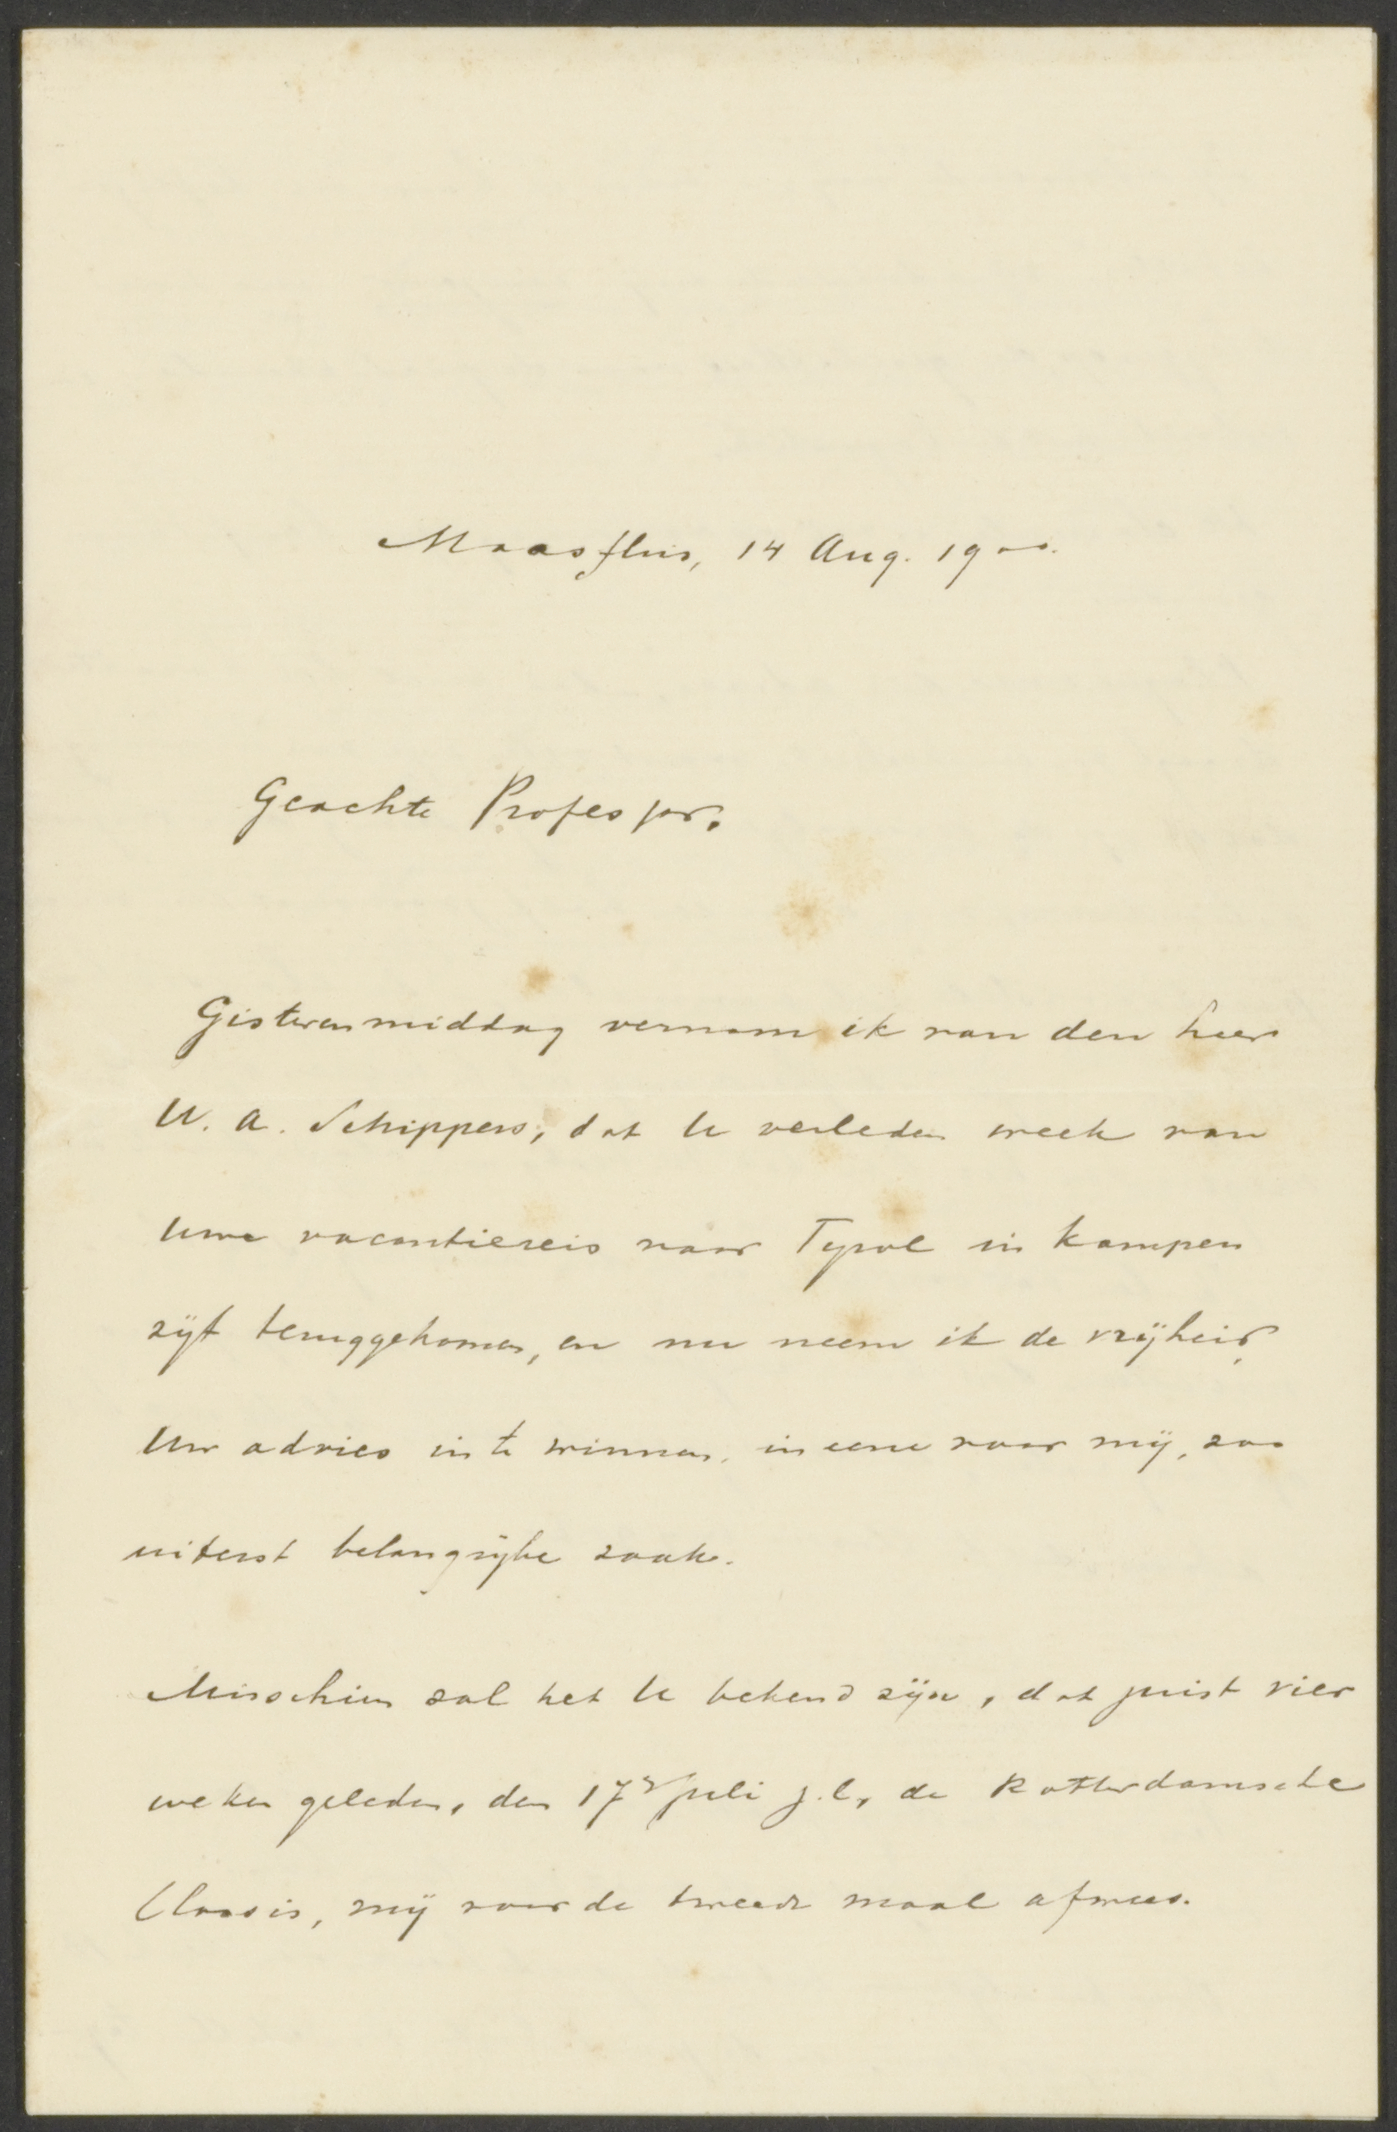 Maassluis, 14 Aug. 1900.
Geachte Professor.
Gisterenmiddag vernam ik van den heer
W. A. Schippers, dat U verleden week van
Uwe vacantiereis naar Tyrol in Kampen
zijt teruggekomen, en nu neem ik de vrijheid,
Uw advies in te winnen, in eene voor mij, zoo
uiterst belangrijke zaak.
Misschien zal het U bekend zijn, dat juist vier
weken geleden, den 17e Juli j.l., de Rotterdamsche
Classis, mij voor de tweede maal afwees.